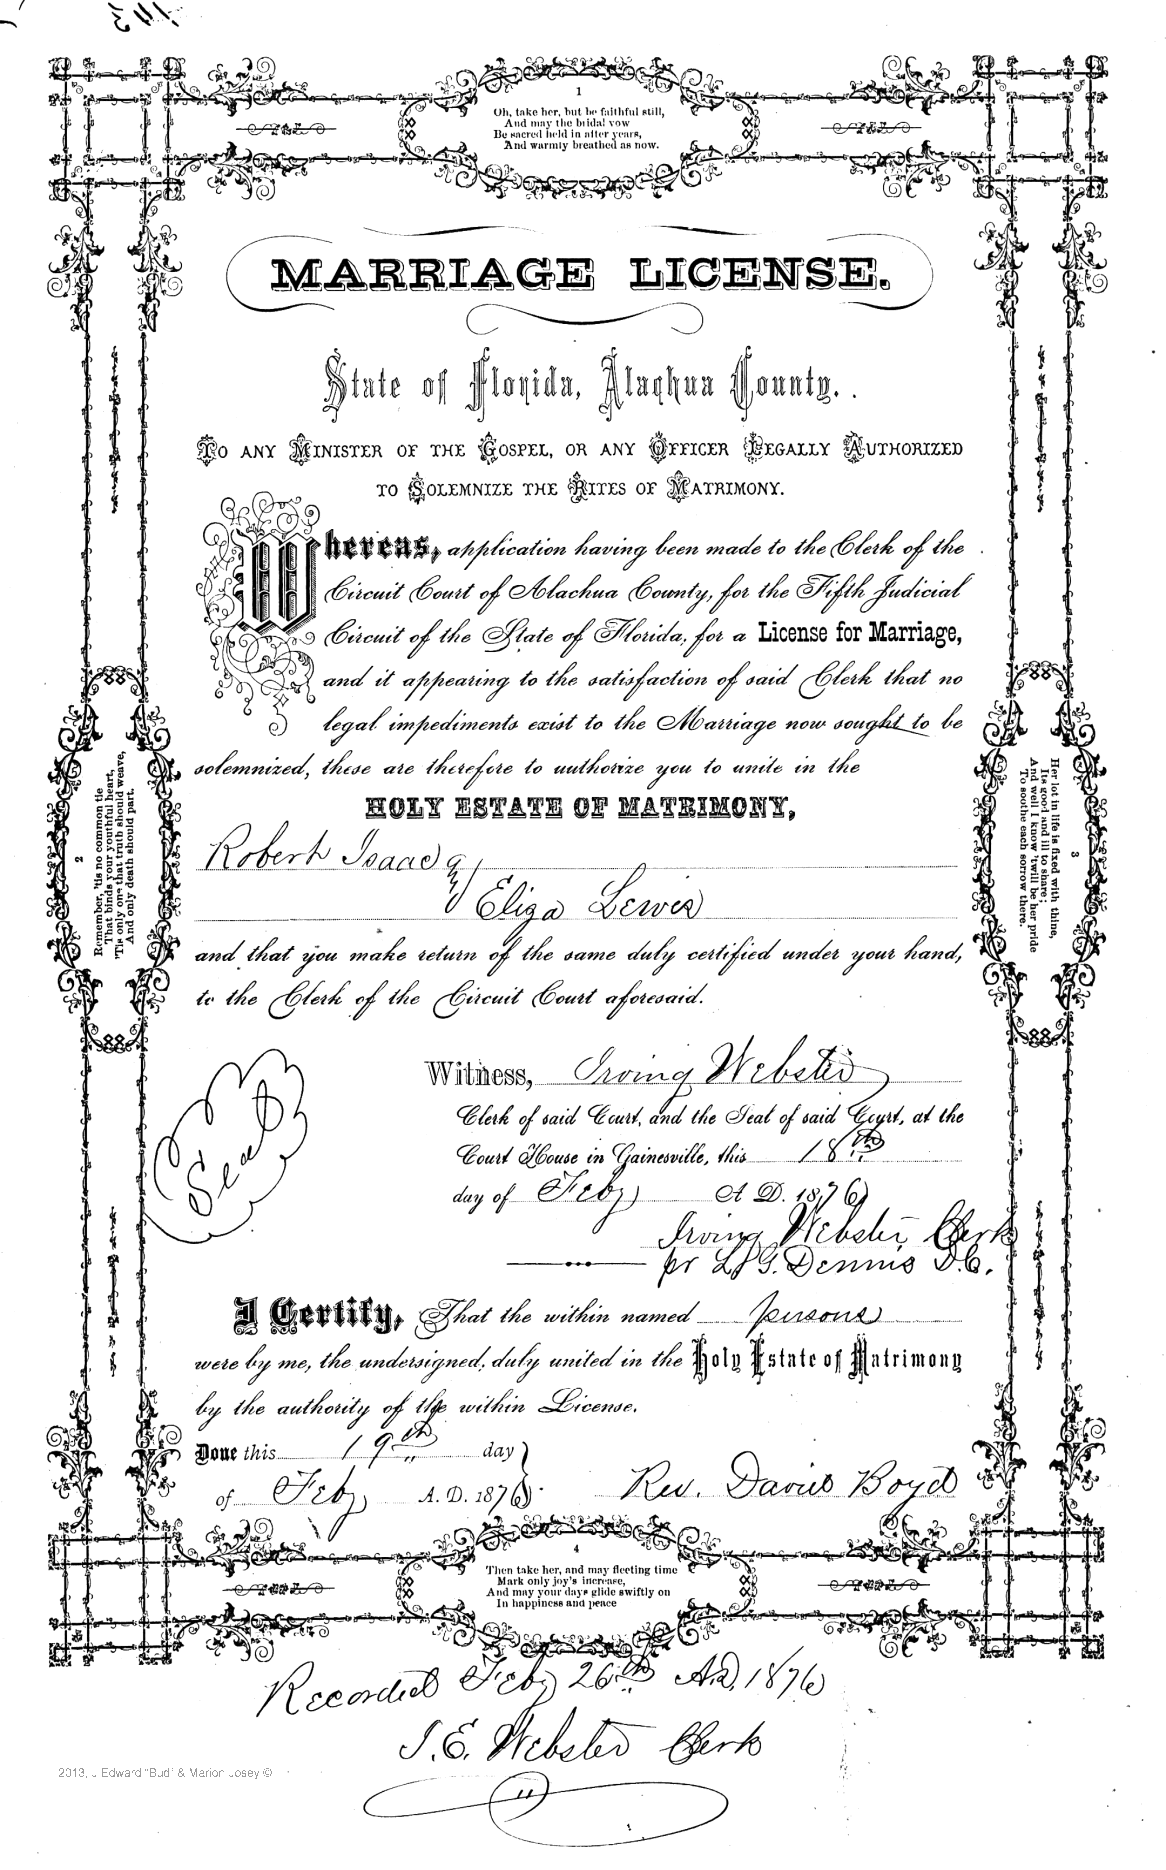 143
1
Oh, take her, but be faithful still,
And may the bridal vow
Be sacred held in after years,
And warmly breathed as now.
MARRIAGE LICENSE.
State of Florida, Alachua County.
TO ANY MINISTER OF THE GOSPEL, OR ANY OFFICER LEGALLY AUTHORIZED
TO SOLEMNIZE THE RITES OF MATRIMONY.
Whereas, application having been made to the Clerk of the
Circuit Court of Alachua County, for the Fifth Judicial
Circuit of the State of Florida, for a License for Marriage,
and it appearing to the satisfaction of said Clerk that no
legal impediments exist to the Marriage now sought to be
solemnized, these are therefore to authorize you to unite in the
HOLY ESTATE OF MATRIMONY,
Robert Isaac &
Eliza Lewis
and that you make return of the same duly certified under your hand,
to the Clerk of the Circuit Court aforesaid.
2
Remember, 'tis no common tie
That binds your youthful heart,
'Tis only one that truth should weave,
And only death should part.
3
Her lot in life is fixed with thine,
Its good and ill to share;
And well I know 'twill be her pride
To soothe each sorrow there.
Seal
Witness, Irving Webster
Clerk of said Court, and the Seal of said Court, at the
Court House in Gainesville, this 18th
day of Feby A. D. 1876
Irving Webster Clerk
pr L. G. Dennis D.C.
I Certify, That the within named persons
were by me, the undersigned, duly united in the Holy Estate of Matrimony
by the authority of the within License.
Done this 19th day
of Feby A. D. 1876.
Rev. David Boyd
4
Then take her, and may fleeting time
Mark only joy's increase,
And may your days glide swiftly on
In happiness and peace
Recorded Feby 26th A.D. 1876
I. E. Webster Clerk
2013, J Edward "Bud" & Marion Josey ©